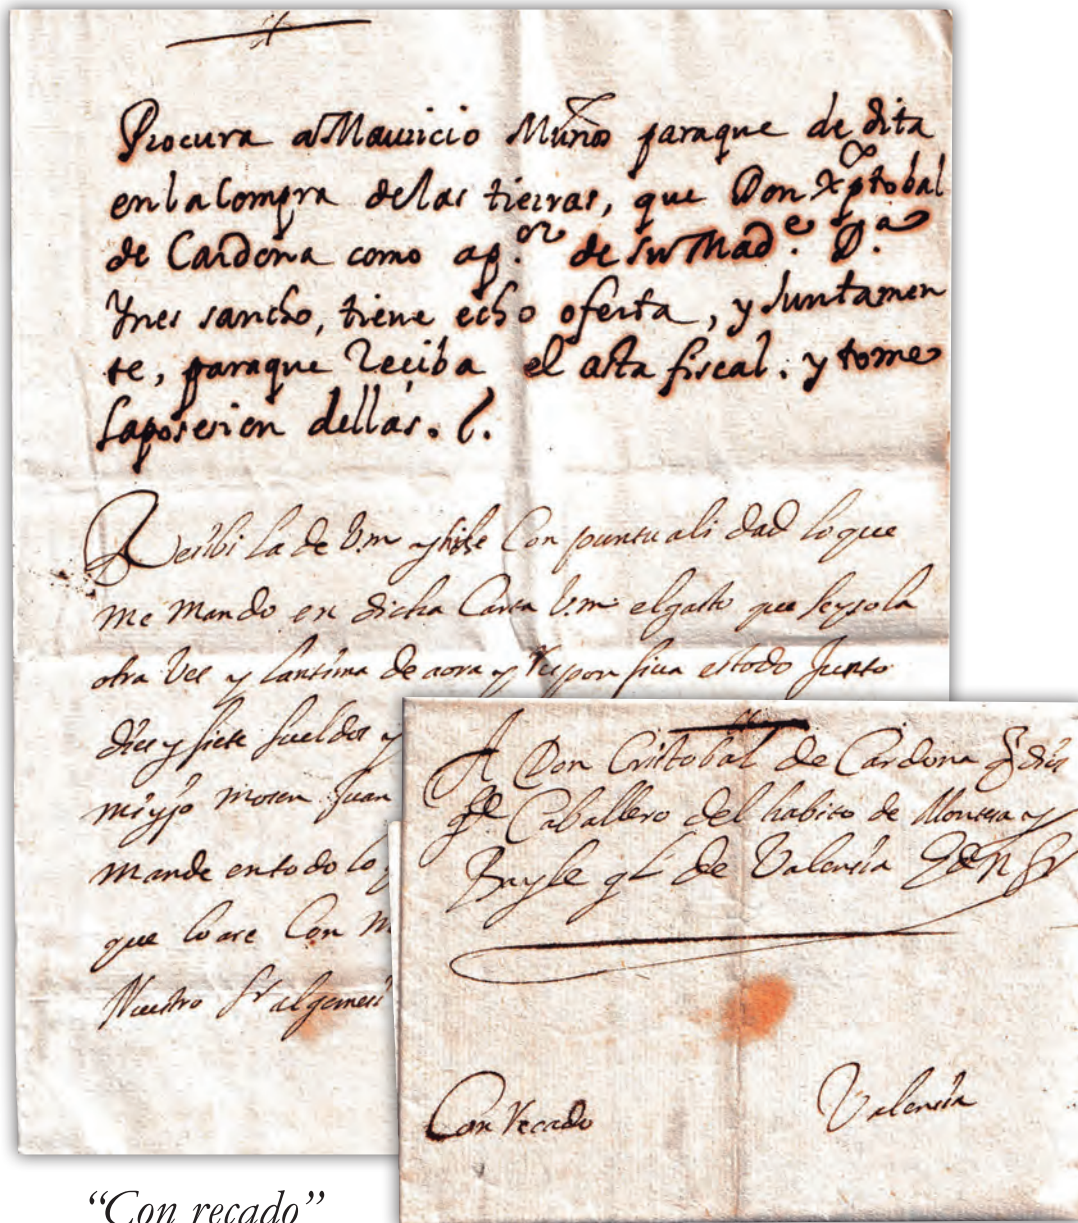 Procura a Mauricio Muños paraque de dita
en la Compra delas tierras, que Don Xptobal
de Cardona como ap.or de su Mad.e D.a
Ynes sancho, tiene echo oferta, y Juntamen
te, paraque Reciba el acta fiscal. y tome
laposesion dellas.
Resibi la de Vm y hise Con puntuali dad lo que
me mando en dicha Carta Vm el gasto que
otra Ves y de aora y es todo Junto
dies y siete sueldos y
mosen Juan
mande en todo lo
que lo are Con
Nuestro Sr algemesi
A Don Cristobal de Cardona
Caballero del habito de Montesa y
Bayle gl de Valensia
Con Recado
Valensia
“Con recado”